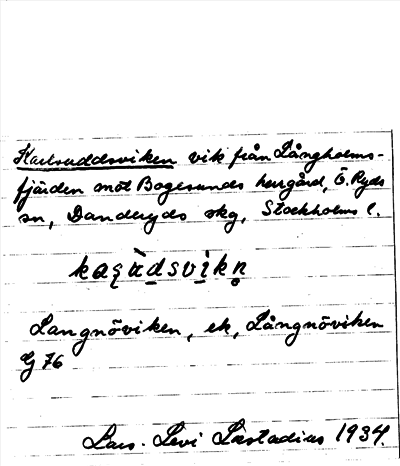 Karlsuddsviken vik från Långholms-
fjärden mot Bogesunds herrgård, Ö. Ryds
sn, Danderyds skg, Stockholms l.
Langnöviken, ek, Långnöviken
G 76
Lars. Levi Læstadius 1934.